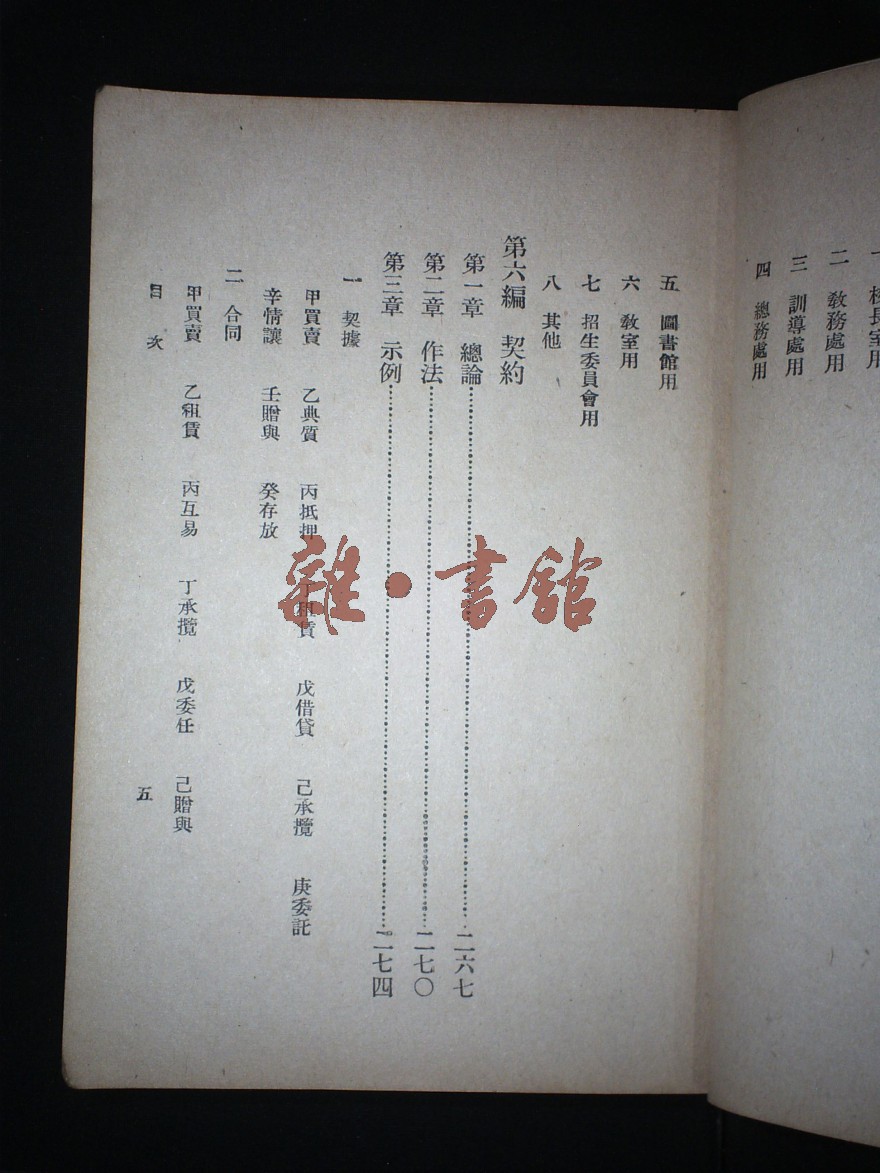 一 校長室用
二 教務處用
三 訓導處用
四 總務處用
五 圖書館用
六 教室用
七 招生委員會用
八 其他
第六編 契約
第一章 總論……二六七
第二章 作法……二七〇
第三章 示例……二七四
一 契據
甲買賣 乙典質 丙抵押 丁租賃 戊借貸 己承攬 庚委託
辛情讓 壬贈與 癸存放
二 合同
甲買賣 乙租賃 丙互易 丁承攬 戊委任 己贈與
目次 五
雜·書館